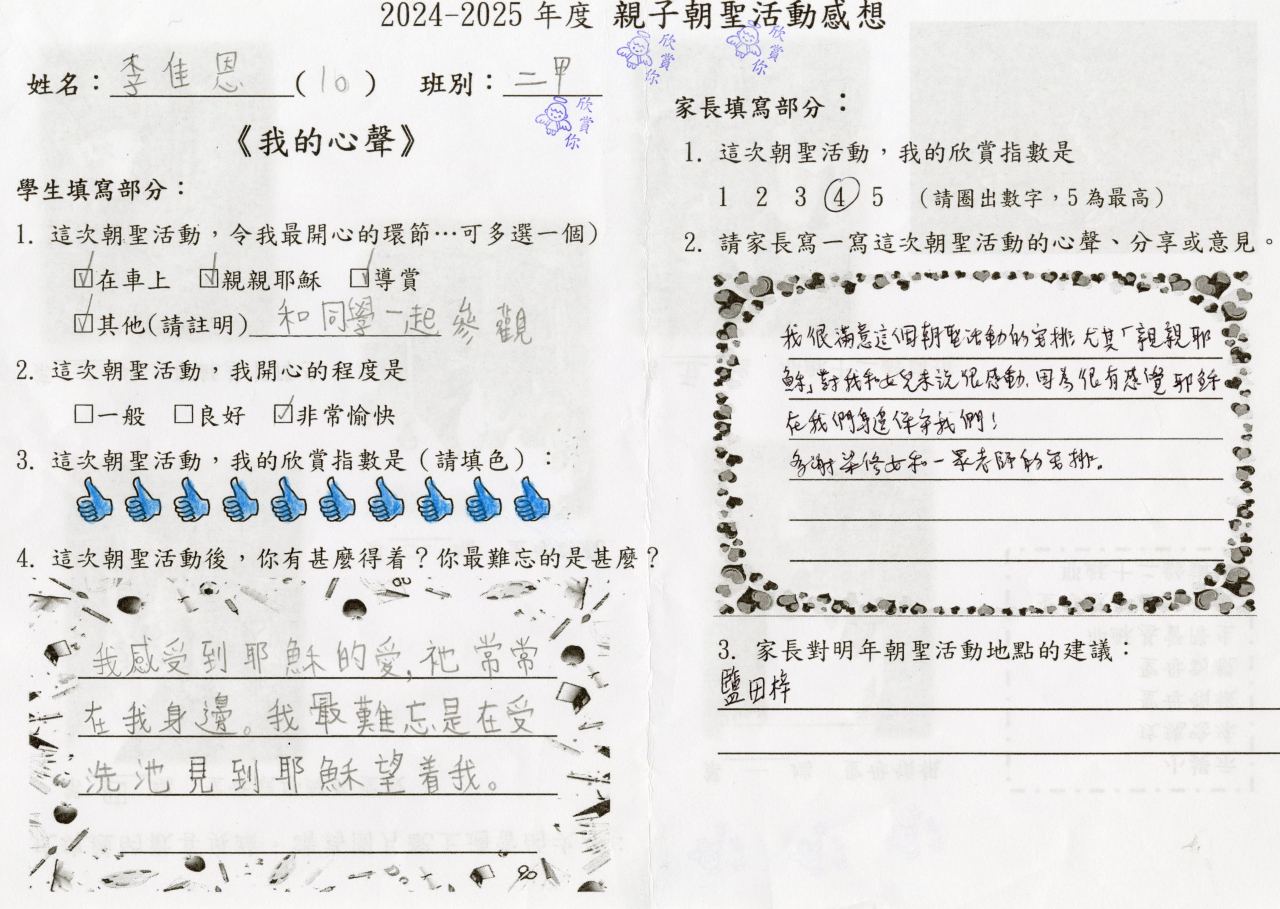 2024-2025 年度 親子朝聖活動感想
姓名：李佳恩(10) 班別：二甲
欣賞你
欣賞你
欣賞你
《我的心聲》
學生填寫部分：
1. 這次朝聖活動，令我最開心的環節…可多選一個）
☑在車上 ☑親親耶穌 ☑導賞
☑其他(請註明) 和同學一起參觀
2. 這次朝聖活動，我開心的程度是
□一般 □良好 ☑非常愉快
3. 這次朝聖活動，我的欣賞指數是（請填色）：
4. 這次朝聖活動後，你有甚麼得着？你最難忘的是甚麼？
我感受到耶穌的愛,祂常常
在我身邊。我最難忘是在受
洗池見到耶穌望着我。
家長填寫部分：
1. 這次朝聖活動，我的欣賞指數是
1 2 3 4 5 （請圈出數字，5為最高）
2. 請家長寫一寫這次朝聖活動的心聲、分享或意見。
我很滿意這個朝聖活動的安排,尤其「親親耶
穌」對我和女兒來說很感動,因為很有感覺耶穌
在我們身邊保守我們!
多謝 修女和一眾老師的安排。
3. 家長對明年朝聖活動地點的建議：
鹽田梓